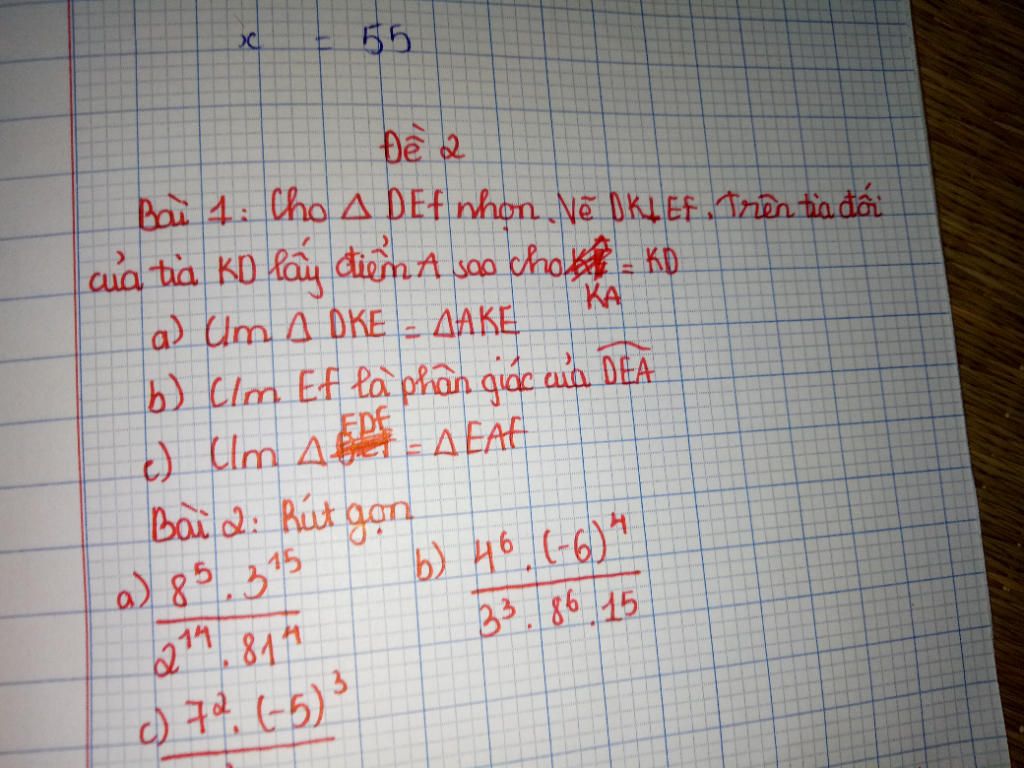 x = 55
Đề 2
Bài 1: Cho △ DEf nhọn. Vẽ DK⊥Ef. Trên tia đối
của tia KD lấy điểm A sao cho KA = KD
a) C/m △ DKE = △AKE
b) C/m Ef là phân giác của DEA
c) C/m △ EDf = △EAf
Bài 2: Rút gọn
a) 8^5 . 3^15 / 2^14 . 81^4 b) 4^6 . (-6)^4 / 3^3 . 8^6 . 15
c) 7^2 . (-5)^3